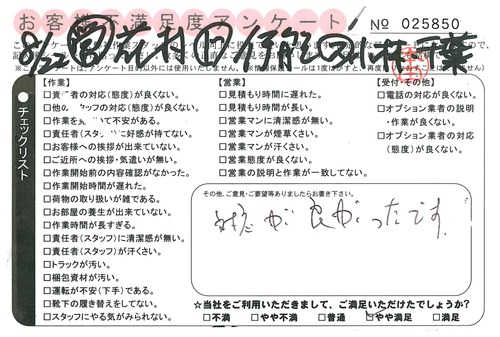 お客様不満足度アンケート
№ 025850
8/22
チェックリスト
【作業】
□責　者の対応(態度)が良くない。
□他の　タッフの対応(態度)が良くない。
□作業を　いて不安がある。
□責任者(スタ　)に好感が持てない。
□お客様への挨拶が出来ていない。
□ご近所への挨拶・気遣いが無い。
□作業開始前の内容確認がなかった。
□作業開始時間が遅れた。
□荷物の取り扱いが雑である。
□お部屋の養生が出来ていない。
□作業時間が長すぎる。
□責任者(スタッフ)に清潔感が無い。
□責任者(スタッフ)が汗くさい。
□トラックが汚い。
□梱包資材が汚い。
□運転が不安(下手)である。
□靴下の履き替えをしてない。
□スタッフにやる気がみられない。
【営業】
□見積もり時間に遅れた。
□見積もり時間が長い。
□営業マンに清潔感が無い。
□営業マンが煙草くさい。
□営業マンが汗くさい。
□営業態度が良くない。
□営業の説明と作業が一致してない。
【受付・その他】
□電話の対応が良くない。
□オプション業者の説明
・作業が良くない。
□オプション業者の対応
(態度)が良くない。
その他、ご意見・ご要望等ありましたらお書き下さい。
対応が良かったです。
☆当社をご利用いただきまして、ご満足いただけたでしょうか?
□不満 □やや不満 □普通 □やや満足 □満足